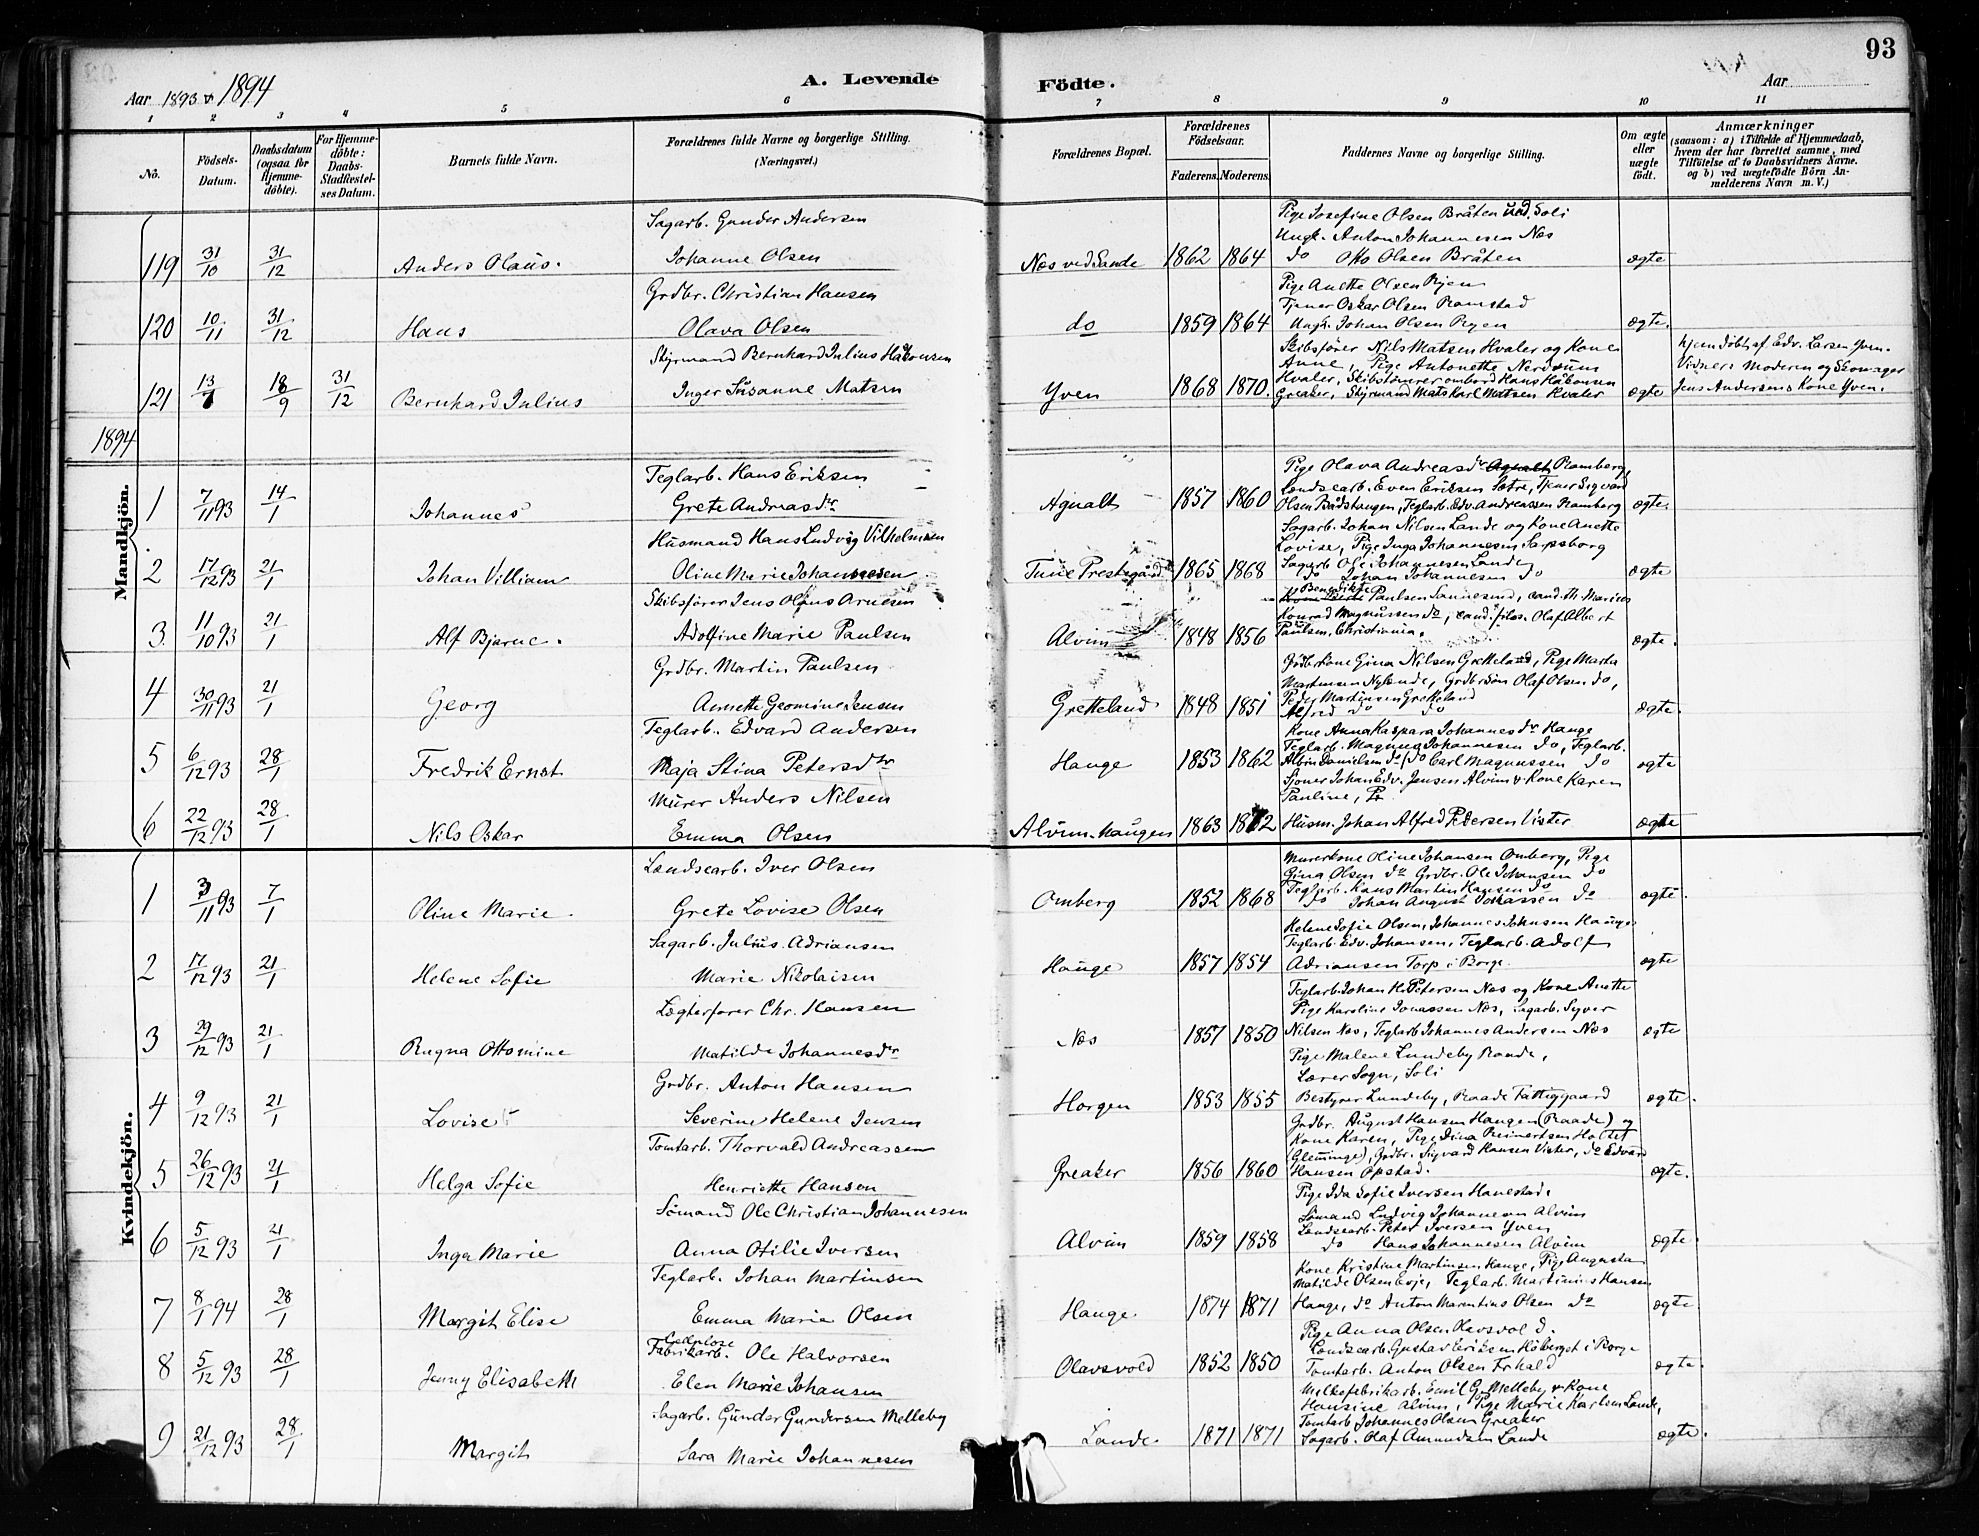 93
Aar 1893 & 1894
A. Levende
Födte.
Aar
1 2 3 4 5 6 7 8 9 10 11
No.
Födsels-Datum.
Daabsdatum (ogsaa for Hjemme-döbte).
For Hjemme-döbte: Daabs-Stadfæstel-ses Datum.
Barnets fulde Navn.
Forældrenes fulde Navne og borgerlige Stilling. (Næringsvei.)
Forældrenes Bopæl.
Forældrenes Födselsaar.
Faderens. Moderens.
Faddernes Navne og borgerlige Stilling.
Om ægte eller uægte födt.
Anmærkninger
(saasom: a) i Tilfælde af Hjemmedaab, hvem der har forrettet samme, med Tilföielse af to Daabsvidners Navne. og b) ved uægtefödte Börn An-melderens Navn m. V.)
Sagarb. Gunder Andersen
Pige Josefine Olsen Bråten ved Soli
Ungk. Anton Johannesen Næs
119 31/10 31/12 Anders Olaus. Johanne Olsen Næs ved Sande 1862 1864 do Otto Olsen Bråten ægte
Grdbr. Christian Hansen
Pige Anette Olsen Ryen
Tjener Oskar Olsen Ramstad
120 10/11 31/12 Hans Olava Olsen do 1859 1864 Ungk. Johan Olsen Ryen ægte.
Styrmand Bernhard Julius Håkonsen
Skibsfører Nils Matsen Hvaler og Kone
Anne, Pige Antonette Nordsum
hjemdøbt af Edv. Larsen Yven.
Vidner: Moderen og Skomager
121 18/9 31/12 Bernhard Julius Inger Susanne Matsen Yven 1868 1870. Hvaler, Skibstømrer ombord Hans Håkonsen
Greaker, Styrmand Mats Karl Matsen Hvaler ægte Jens Andersens Kone Yven.
1894
Mandkjön.
Teglarb. Hans Eriksen
Pige Olava Andreasdr Ramberg,
Landsearb. Even Eriksen Sætre, Tjener Sigvard
1 7/11 93 14/1 Johannes Grete Andreasdr Agnalt 1857 1860 Olsen Badstuugen, Teglarb. Edv. Andreassen Ramberg ægte.
Husmand Hans Ludvig Vilhelmsen
Sagarb. Johan Nilsen Lande og Kone Anette
Lovise, Pige Inga Johannesen Sapsborg
2 17/12 93 21/1 Johan Villiam Oline Marie Johannesen Tune Prestegård 1865 1868 Sagarb Ole Johannesen Lande
do Johan Johannesen do ægte
Skibsfører Jens Olaus Arnesen
Benedikte Paulsen Sannesund, cand. th. Marius
Konrad Magnussen do, cand. filos. Olaf Albert
3. 11/10 93 21/1 Alf Bjarne. Adolfine Marie Paulsen Alvim 1848 1856 Paulsen, Christiania. ægte.
Grdbr. Martin Paulsen
Grdbrkone Gina Nilsen Gretteland, Pige Marta
Martinsen Nylende, Grdbrsøn Olaf Olsen do,
4 30/11 93 21/1 Georg Annette Geomine Jensen Gretteland 1848 1851 Peder Martinsen Gretteland
Alfred do do ægte.
Teglarb. Edvard Andersen
Kone Anna Kaspara Johannesdr Hauge
Teglarb. Magnus Johannesen do, Teglarb.
5 6/12 93 28/1 Fredrik Ernst Maja Stina Petersdr Hauge 1853 1862 Albin Danielsen do, do Carl Magnussen do ægte
Murer Anders Nilsen
Johan Edv. Jensen Alvim & Kone Karen
Pauline,
6 22/12 93 28/1 Nils Oskar Emma Olsen Alvim-haugen 1863 1872 Husm. Johan Alfred Pedersen Vister ægte
Kvindekjön.
Landsearb. Iver Olsen
Murerkone Oline Johansen Omberg, Pige
Gina Olsen do Grdbr. Ole Johansen do
1 3/11 93 7/1 Oline Marie Grete Lovise Olsen Omberg 1852 1868 Teglarb. Hans Martin Hansen do
do Johan August Jonassen do ægte.
Sagarb. Julius Adriansen
Helene Sofie Olsen, Johannes Johnsen Hauge,
Teglarb. Edv. Johansen, Teglarb. Adolf
2 17/12 93 21/1 Helene Sofie Marie Nikolaisen Hauge 1857 1854 Adriansen Torp i Borge. ægte
Lægterfører Chr. Hansen
Teglarb. Johan H. Petersen Næs og Kone Anette
Pige Karoline Jonassen Næs, Sagarb. Syver
3 29/12 93 21/1 Ragna Ottomine Matilde Johannesdr Næs 1857 1850 Nilsen Næs, Teglarb Johannes Andersen Næs ægte
Grdbr. Anton Hansen
Pige Malene Lundeby Raade,
Lærer Sogn, Soli
4 9/12 93 21/1 Lovise Severine Helene Jensen Horgen 1853 1855 Bestyrer Lundeby, Raade Fattiggaard ægte.
Tomtarb. Thorvald Andreassen
Grdbr. August Hansen Haugen (Raade) og
Kone Karen, Pige Dina Reinertsen Holtet
5 26/12 93 21/1 Helga Sofie Henriette Hansen Greaker 1856 1860 (Glemminge), Grdbr. Sigvard Hansen Vister, do Edvard
Hansen Opstad. ægte.
Sömand Ole Christian Johannesen
Pige Ida Sofie Iversen Hanestad.
Sömand Ludvig Johannesen Alvim
6 5/12 93 21/1 Inga Marie Anna Otilie Iversen Alvim 1859 1858 Landsearb. Peter Iversen Yven
do Hans Johannesen Alvim ægte.
Teglarb. Johan Martinsen
Kone Kristine Martinsen Hauge, Pige Augusta
Matilde Olsen Evje, Teglarb. Martinius Hansen
7 8/1 94 28/1 Margit Elise Emma Marie Olsen Hauge 1874 1871 Hauge, do Anton Marentius Olsen do ægte.
Cellulose
Fabrikarb. Ole Halvorsen
Pige Anna Olsen Olavsvold.
Landsearb. Gustav Eriksen Höberget i Borge
8 5/12 93 28/1 Jenny Elisabeth Elen Marie Johansen Olavsvold 1852 1850 Tomtarb. Anton Olsen Erhald ægte
Sagarb. Gunder Gundersen Melleby
Melkefabrikarb. Emil G. Melleby & Kone
Hansine Alvim, Pige Marie Karlsen Lande,
9 21/12 93 28/1 Margit Sara Marie Johannesen Lande 1871 1871 Tomtarb Johannes Olsen Greaker
Sagarb. Olaf Amundsen Lande ægte.